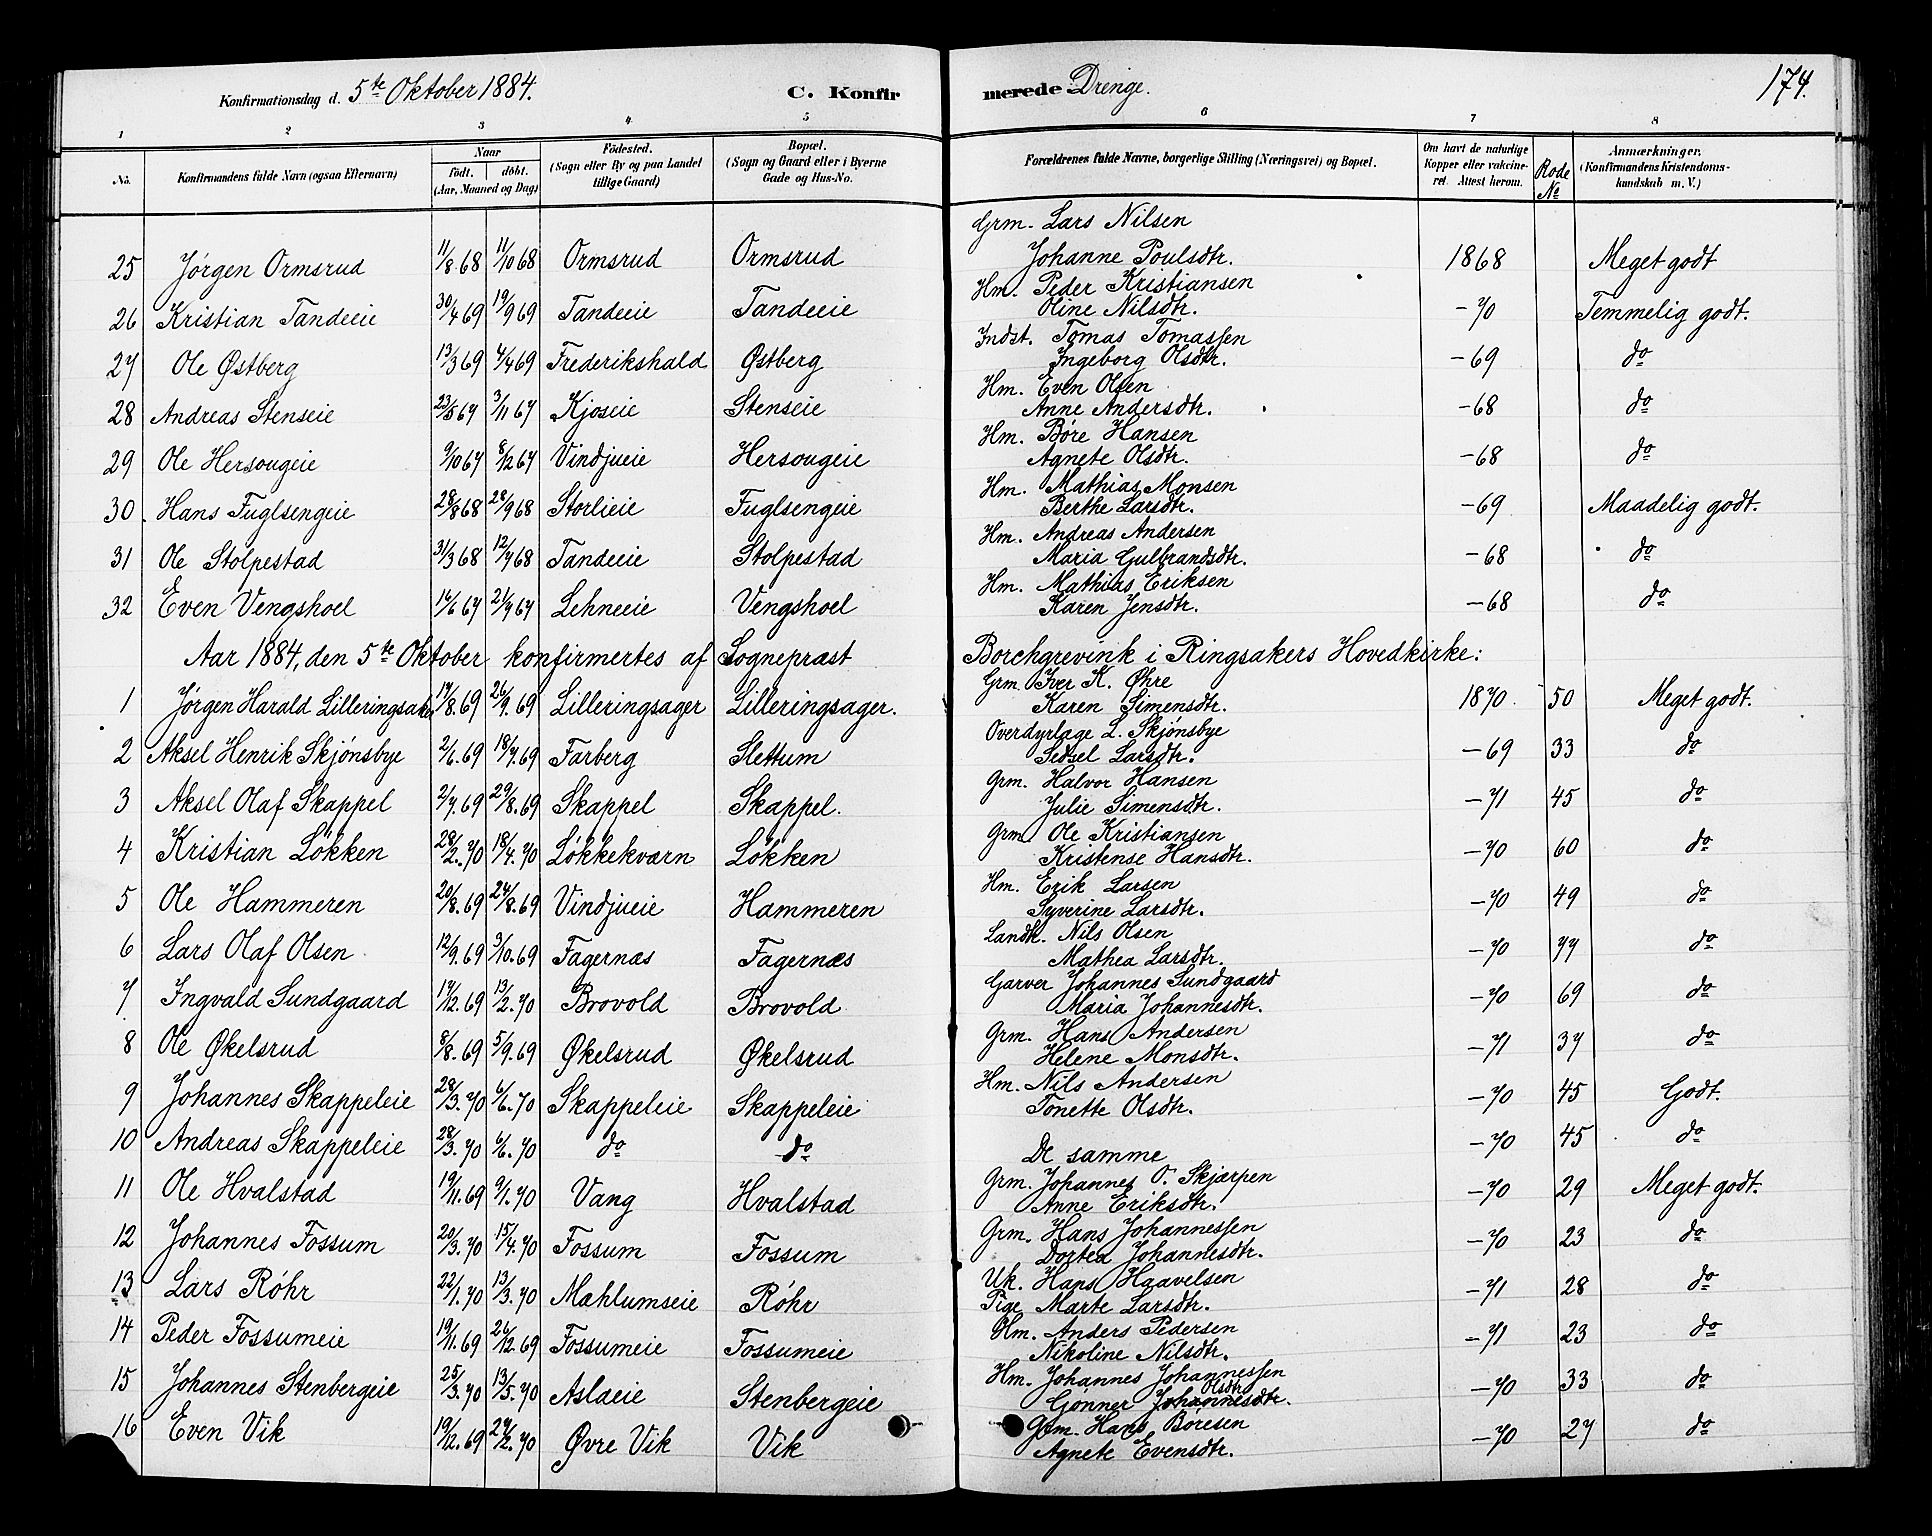 Konfirmationsdag d. 5te Oktober 1884. C. Konfirmerede Drenge. 174.
1 2 3 4 5 6 7 8
No. Konfirmandens fulde Navn (ogsaa Efternavn) Naar født. døbt. (Aar, Maaned og Dag) Fødested. (Sogn eller By og paa Landet tillige Gaard) Bopæl. (Sogn og Gaard eller i Byerne Gade og Hus-No. Forældrenes fulde Navne, borgerlige Stilling (Næringsvei) og Bopæl. Om havt de naturlige Kopper eller vakcineret. Attest herom. Rode No Anmærkninger, (Konfirmandens Kristendomskundskab m. V.)
Grm. Lars Nilsen
25 Jörgen Ormsrud 11/8 68 11/10 68 Ormsrud Ormsrud Johanne Poulsdtr. 1868 Meget godt
Hm. Peder Kristiansen
26 Kristian Tandeeie 30/4 69 19/9 69 Tandeeie Tandeeie Oline Nilsdtr. -70 Temmelig godt.
Indst. Tomas Tomassen
27 Ole Østberg 13/3 69 4/4 69 Frederikshald Østberg Ingeborg Olsdtr. -69 do
Hm. Even Olsen
28 Andreas Stenseie 23/5 67 3/11 67 Kjoseie Stenseie Anne Andersdtr. -68 do
Hm. Böre Hansen
29 Ole Hersougeie 9/10 67 8/12 67 Vindjueie Hersougeie Agnete Olsdtr. -68 do
Hm. Mathias Monsen
30. Hans Fuglsengeie 28/8 68 28/9 68 Storlieie Fuglsengeie Berthe Larsdtr. -69 Maadelig godt.
Hm. Andreas Andersen
31 Ole Stolpestad 31/3 68 12/7 68 Tandeeie Stolpestad Maria Gulbrandsdtr. -68 do
Hm. Mathias Eriksen
32 Even Vengshoel 14/6 67 21/7 67 Lehneeie Vengshoel Karen Jensdtr. -68 do
Aar 1884, den 5te Oktober konfirmertes af Sogneprest Borchgrevink i Ringsakers Hovedkirke:
Grm. Iver K. Øhre
1 Jörgen Harald Lilleringsaker 17/8. 69 26/9. 69 Lilleringsager Lilleringsager. Karen Simensdtr. 1870. 50 Meget godt.
Overdyrlæge L. Skjönsbye
2 Aksel Henrik Skjönsbye 2/6. 69 18/7. 69 Farberg Slettum Sidsel Larsdtr. -69 33 do
Grm. Halvor Hansen
3 Aksel Olaf Skappel 2/7. 69 29/8. 69 Skappel Skappel. Julie Simensdtr. -71 45 do
Grm. Ole Kristiansen
4 Kristian Lökken 28/2. 70 18/4. 70 Lökkekværn Lökken Kristense Hansdtr. -70 60 do
Hm. Erik Larsen
5 Ole Hammeren 20/8. 69 24/8. 69 Vindjueie Hammeren Syverine Larsdtr. -70 49 do
Landh. Nils Olsen
6 Lars Olaf Olsen 12/9. 69 3/10. 69 Fagernæs Fagernæs Mathea Larsdtr. -70 77 do
Garver Johannes Sundgaard
7 Ingvald Sundgaard 17/12. 69 13/2. 70 Brovold Brovold Maria Johannesdtr. -70 69 do
Grm. Hans Andersen
8 Ole Økelsrud 8/8. 69 5/9. 69 Økelsrud Økelsrud Helene Monsdtr. -71 37 do
Hm. Nils Andersen
9 Johannes Skappeleie 28/3. 70 6/6. 70 Skappeleie Skappeleie Tonette Olsdtr. -70 45 Godt.
10 Andreas Skappeleie 28/3. 70 6/6. 70 do do De samme -70 45 do
Grm. Johannes O. Skjærpen
11 Ole Hvalstad 19/11. 69 9/1. 70 Vang Hvalstad Anne Eriksdtr. -70 29 Meget godt.
Grm. Hans Johannessen
12 Johannes Fossum 20/3. 70 15/4. 70 Fossum Fossum Dortea Johannesdtr. -70 23 do
Uk. Hans Haavelsen
13 Lars Röhr 22/1. 70 13/3. 70 Mæhlumseie Röhr Pige Marte Larsdtr. -71 28 do
Hm. Anders Pedersen
14 Peder Fossumeie 19/11. 69 26/12. 69 Fossumeie Fossumeie Nikoline Nilsdtr. -71 23 do
Hm. Johannes Johannessen
15 Johannes Stenbergeie 25/3. 70 13/5. 70 Aslaeie Stenbergeie Gönner Johannesdtr. Olsdtr. -70 33 do
Grm. Hans Böresen
16 Even Vik 19/12. 69 27/2. 70 Øvre Vik Vik Agnete Evensdtr. -70 27 do